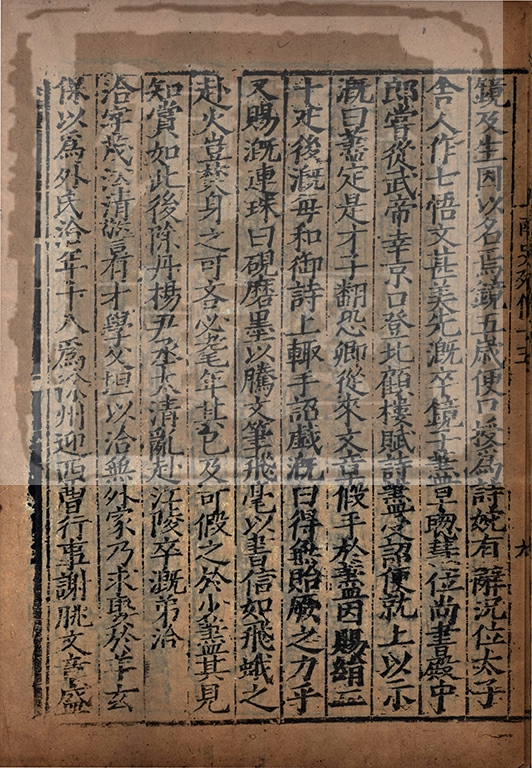 鏡及生因以名焉鏡五歲便口授為詩婉有辭況位太子
舍人作七悟文甚美先溉卒鏡子藎早聰慧位尚書殿中
郎嘗從武帝幸京口登北顧樓賦詩藎受詔便就上以示
溉曰藎定是才子翻恐卿從來文章假手於藎因賜絹二
十疋後溉每和御詩上輙手詔戲溉曰得無貽厥之力乎
又賜溉連珠曰硯磨墨以騰文筆飛毫以書信如飛蛾之
赴火豈焚身之可吝必耄年其已及可假之於少藎其見
知賞如此後除丹楊尹丞太清亂赴江陵卒溉弟洽
洽字茂㳂清警有才學父坦以洽無外家乃求娶於羊玄
保以為外氏洽年十八為徐州迎西曹行事謝朓文章盛